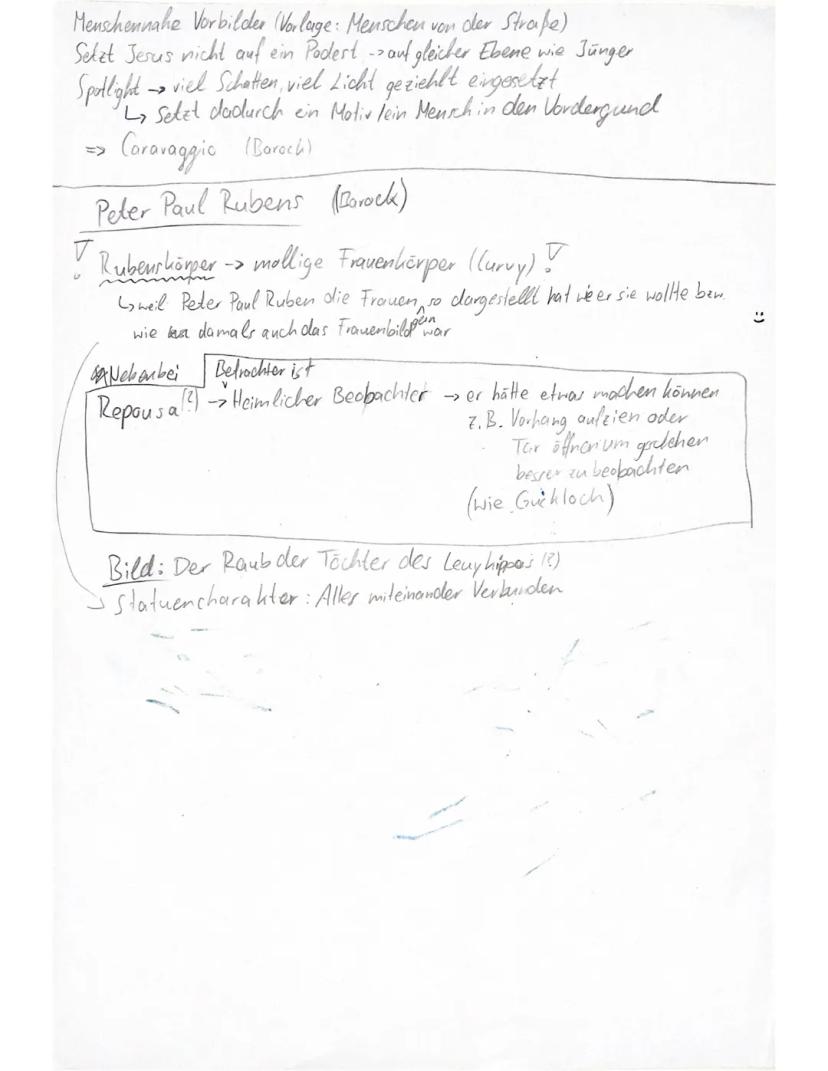 Menschennahe Vorbilder (Vorlage: Menschen von der Straße)
Setzt Jesus nicht auf ein Podest -> auf gleicher Ebene wie Jünger
Spotlight -> viel Schatten, viel Licht geziehlt eingesetzt
↳ Setzt dadurch ein Motiv/ein Mensch in den Vordergund
=> Caravaggio (Barock)
Peter Paul Rubens (Barock)
! Rubenskörper -> mollige Frauenkörper (Curvy) !
↳ weil Peter Paul Ruben die Frauen so dargestellt hat wie er sie wollte bzw.
wie damals auch das Frauenbild war
Nebenbei
Betrachter ist
Repousa (?) -> Heimlicher Beobachter -> er hätte etwas machen können
z.B. Vorhang aufzien oder
Tür öffnen um
besser zu beobachten
(wie Guckloch)
Bild: Der Raub der Töchter des (?)
Statuencharakter: Alles miteinander Verbunden